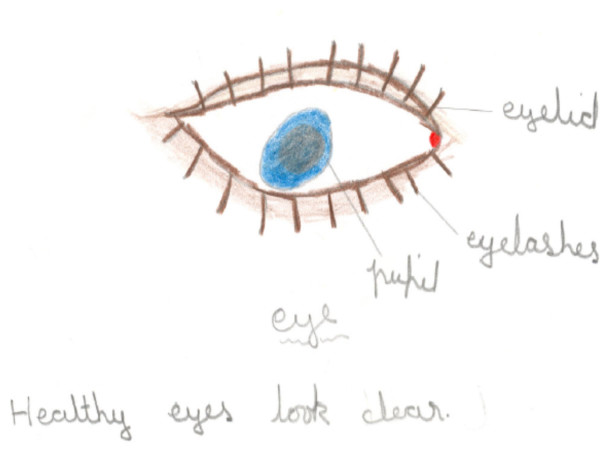 eyelid
eyelashes
pupil
eye
Healthy eyes look clear.